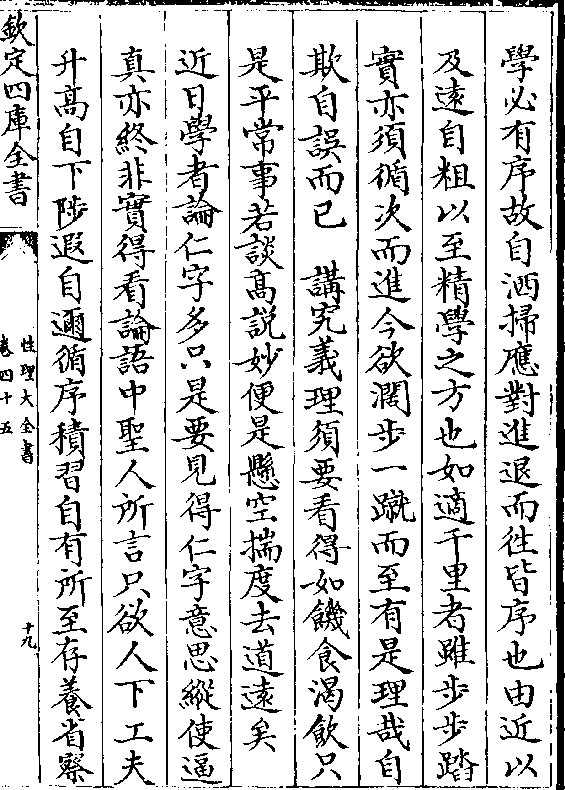 學必有序故自洒掃應對進退而往皆序也由近以
及遠自粗以至精學之方也如適千里者雖步步踏
實亦須循次而進今欲濶步一蹴而至有是理哉自
欺自誤而已　講究義理須要看得如饑食渴飲只
是平常事若談髙説妙便是懸空揣度去道遠矣
近日學者論仁字多只是要見得仁字意思縱使逼
真亦終非實得看論語中聖人所言只欲人下工夫
升髙自下陟遐自邇循序積習自有所至存養省察
欽定四庫全書
性理大全書
卷四十五
十九